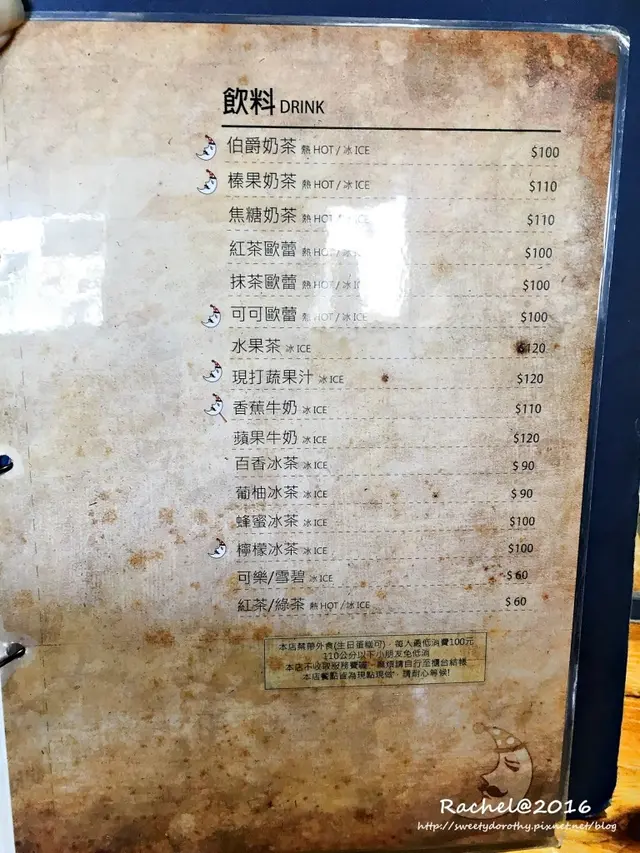 飲料 DRINK
伯爵奶茶 熱 HOT / 冰 ICE $100
榛果奶茶 熱 HOT / 冰 ICE $110
焦糖奶茶 熱 HOT / 冰 ICE $110
紅茶歐蕾 熱 HOT / 冰 $100
抹茶歐蕾 熱 HOT / 冰 $100
可可歐蕾 熱 HOT / 冰 ICE $100
水果茶 冰 ICE $120
現打蔬果汁 冰 ICE $120
香蕉牛奶 冰 ICE $110
蘋果牛奶 冰 ICE $120
百香冰茶 冰 ICE $ 90
葡柚冰茶 冰 ICE $ 90
蜂蜜冰茶 冰 ICE $100
檸檬冰茶 冰 ICE $100
可樂/雪碧 冰 ICE $ 60
紅茶/綠茶 熱 HOT / 冰 ICE $ 60
本店禁帶外食(生日蛋糕可)，每人最低消費100元
110公分以下小朋友免低消
本店不收取服務費喔，麻煩請自行至櫃台結帳
本店餐點皆為現點現做，請耐心等候!
Rachel@2016
http://sweetydorothy.pixnet.net/blog